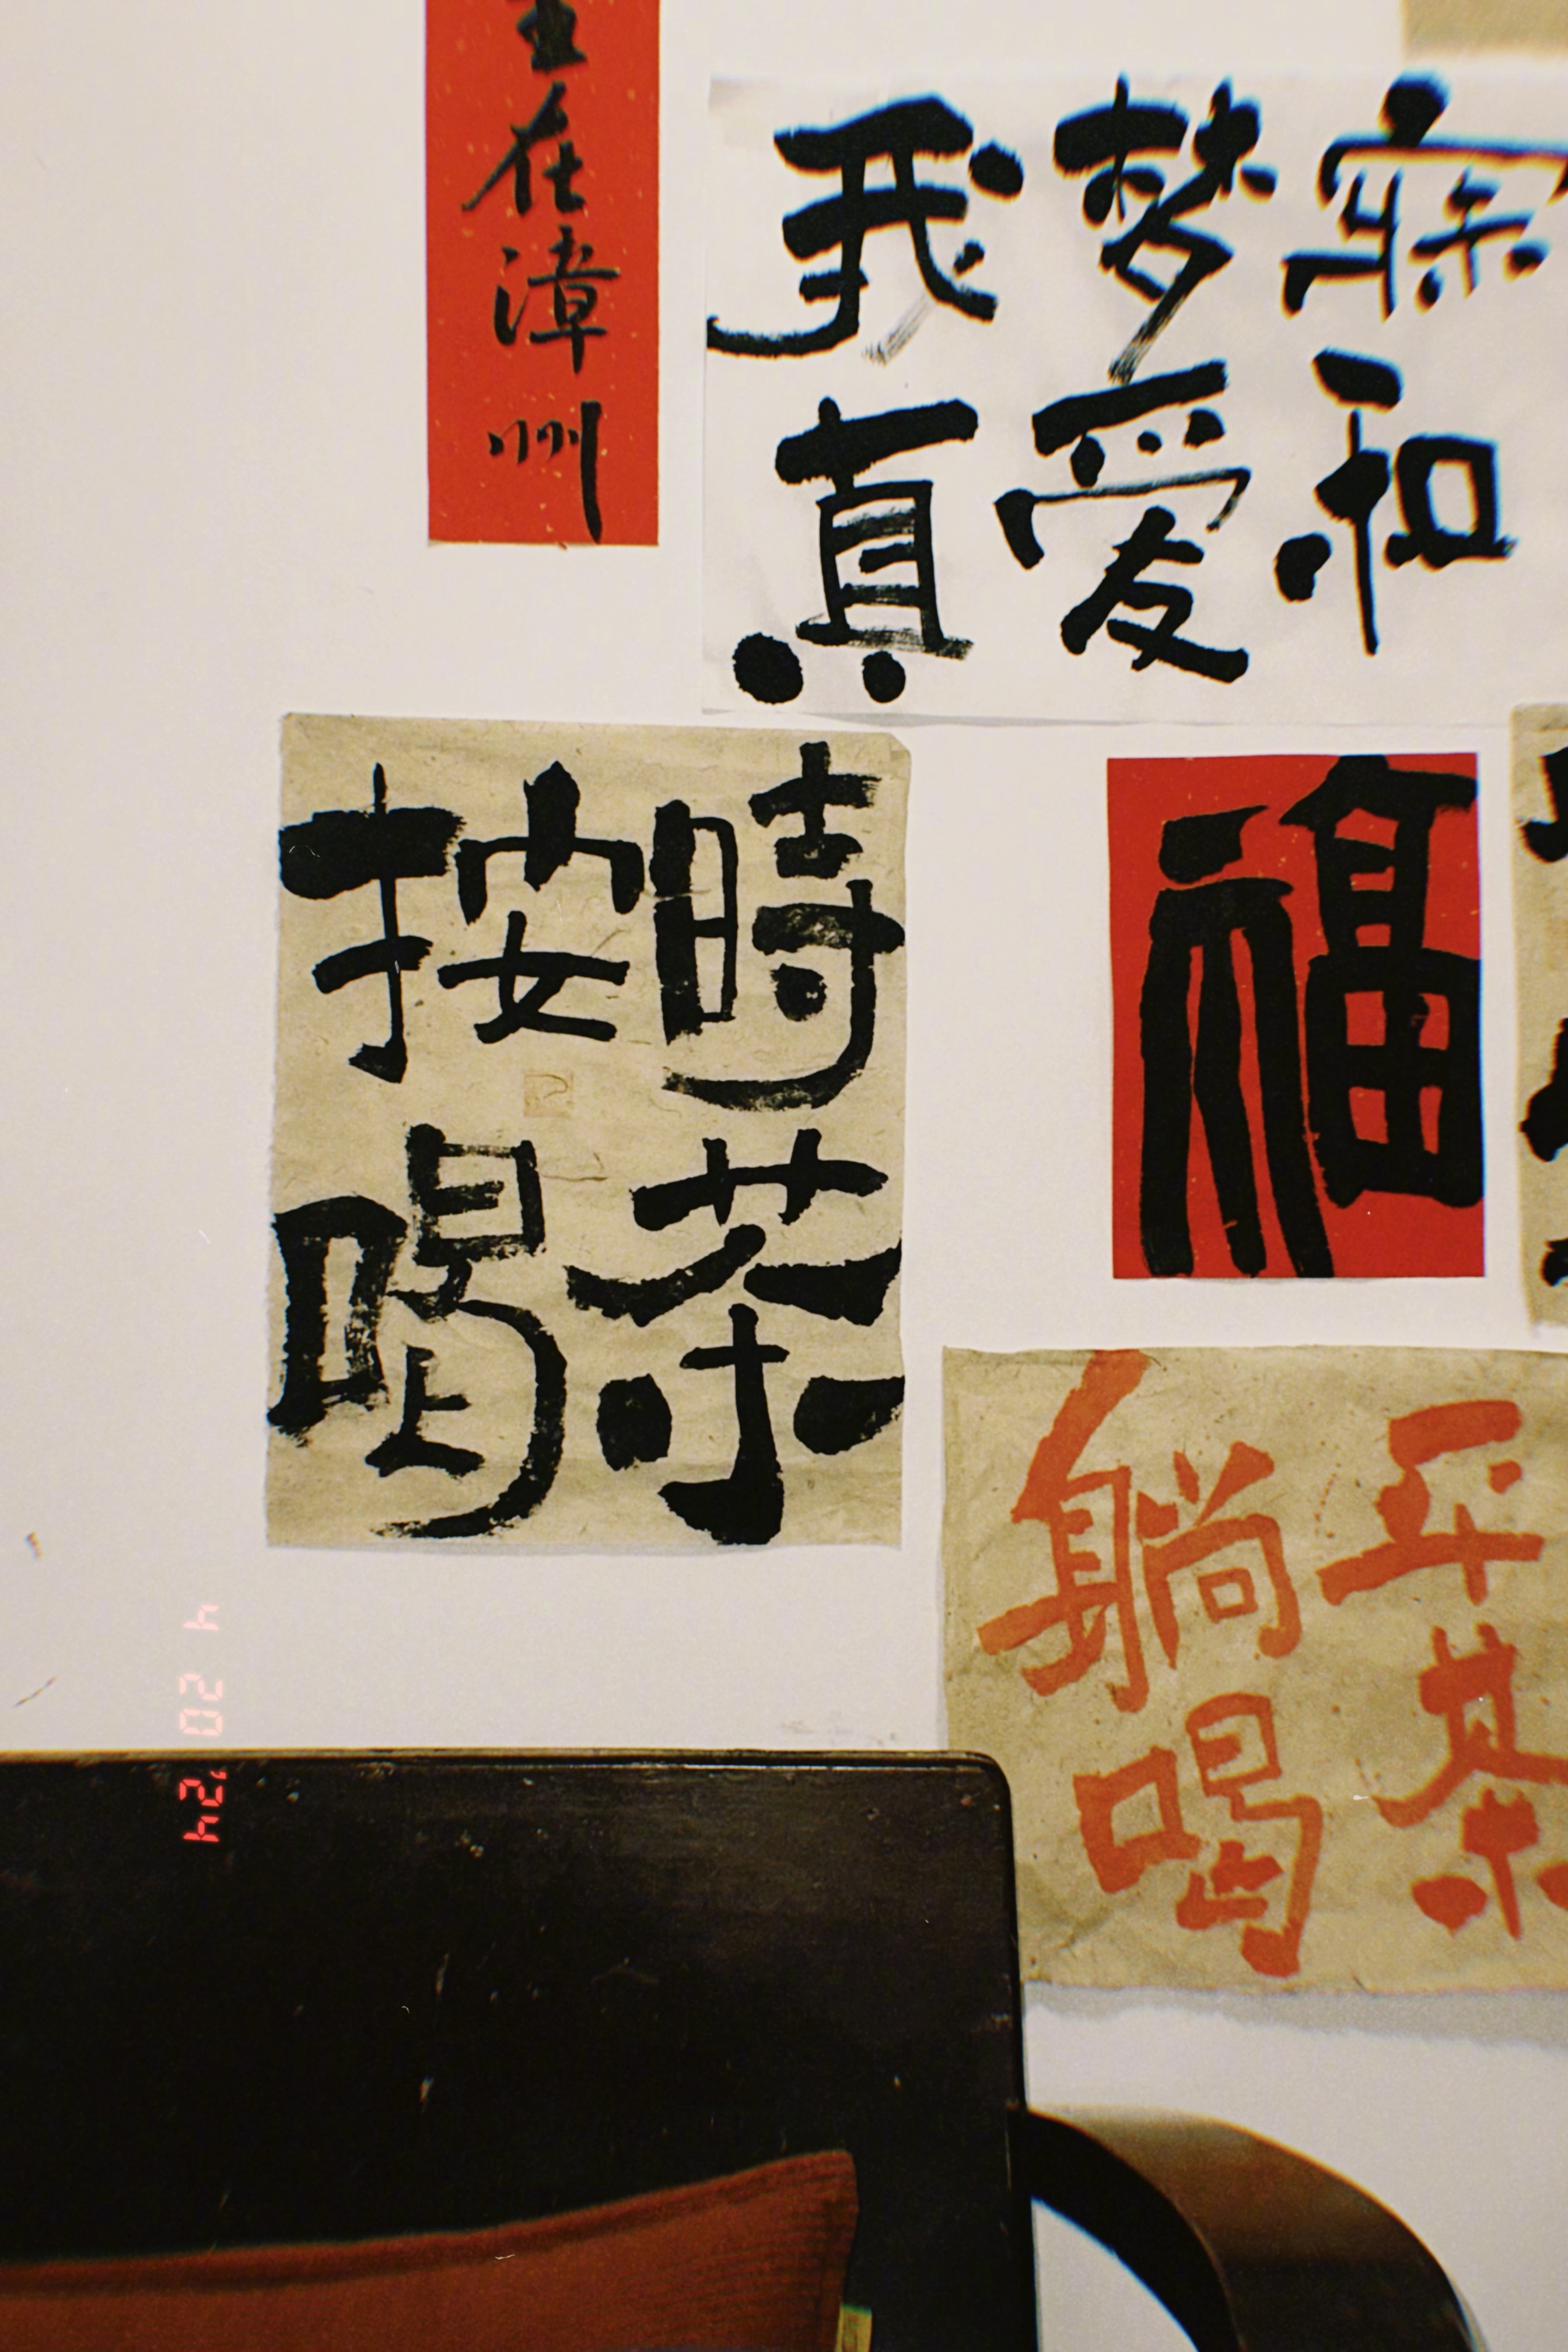 在漳州
我夢寐
真愛和
按時
喝茶
福
躺平
喝茶
4 20 '24